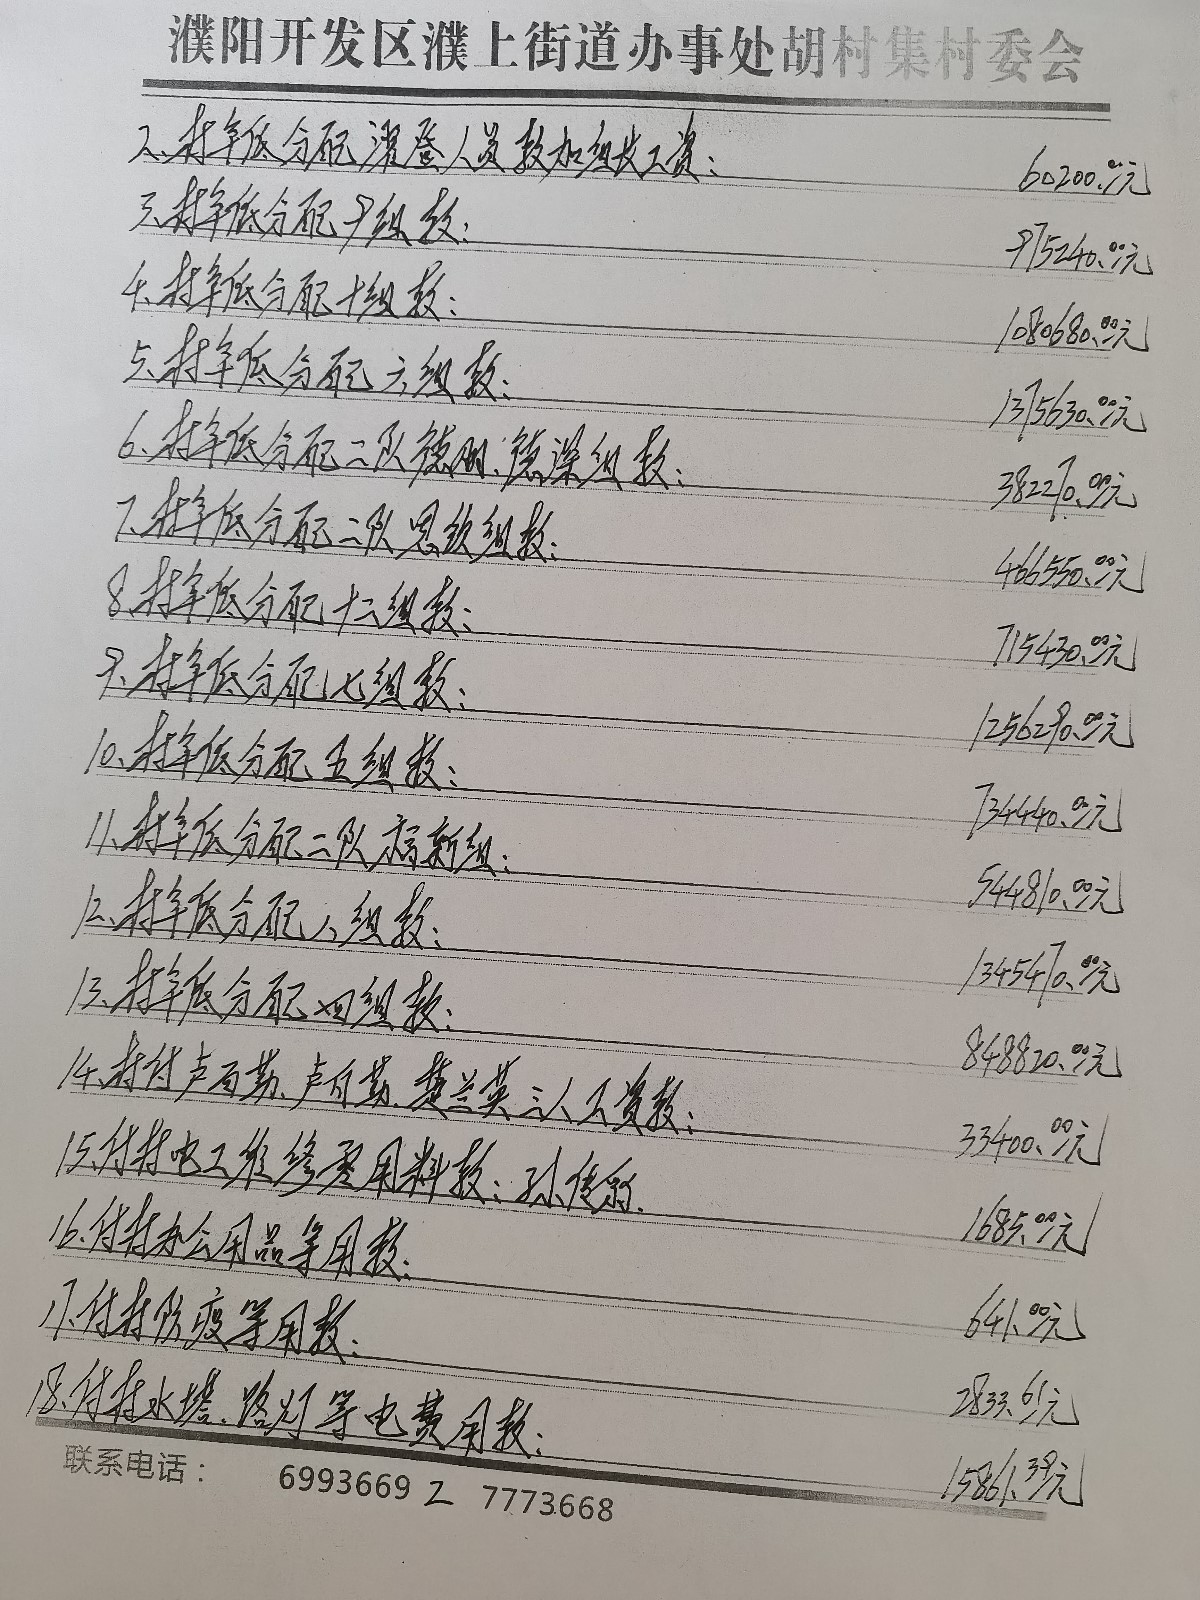 濮阳开发区濮上街道办事处胡村集村委会
2、村年低分配 人员款加组长工资： 60200.00元
3、村年低分配9组款： 975240.00元
4、村年低分配十组款： 1080680.00元
5、村年低分配六组款： 1375630.00元
6、村年低分配二队德明、德深组款： 382270.00元
7、村年低分配二队思钦组款： 466550.00元
8、村年低分配十二组款： 715430.00元
9、村年低分配七组款： 1256290.00元
10、村年低分配五组款： 734440.00元
11、村年低分配二队 新组： 544810.00元
12、村年低分配八组款： 1345470.00元
13、村年低分配四组款： 848820.00元
14、村付卢百勤、卢 勤、楚兰英三人工资款： 33400.00元
15、付村电工维修 用料款：孙传 1685.00元
16、付村办公用品等用款： 641.00元
17、付村防疫等用款： 2833.61元
18、付村水塔、路灯等电费用款： 15861.39元
联系电话： 6993669 2 7773668